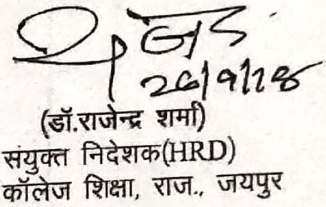 26/9/18
(डॉ.राजेन्द्र शर्मा)
संयुक्त निदेशक(HRD)
कॉलेज शिक्षा, राज., जयपुर